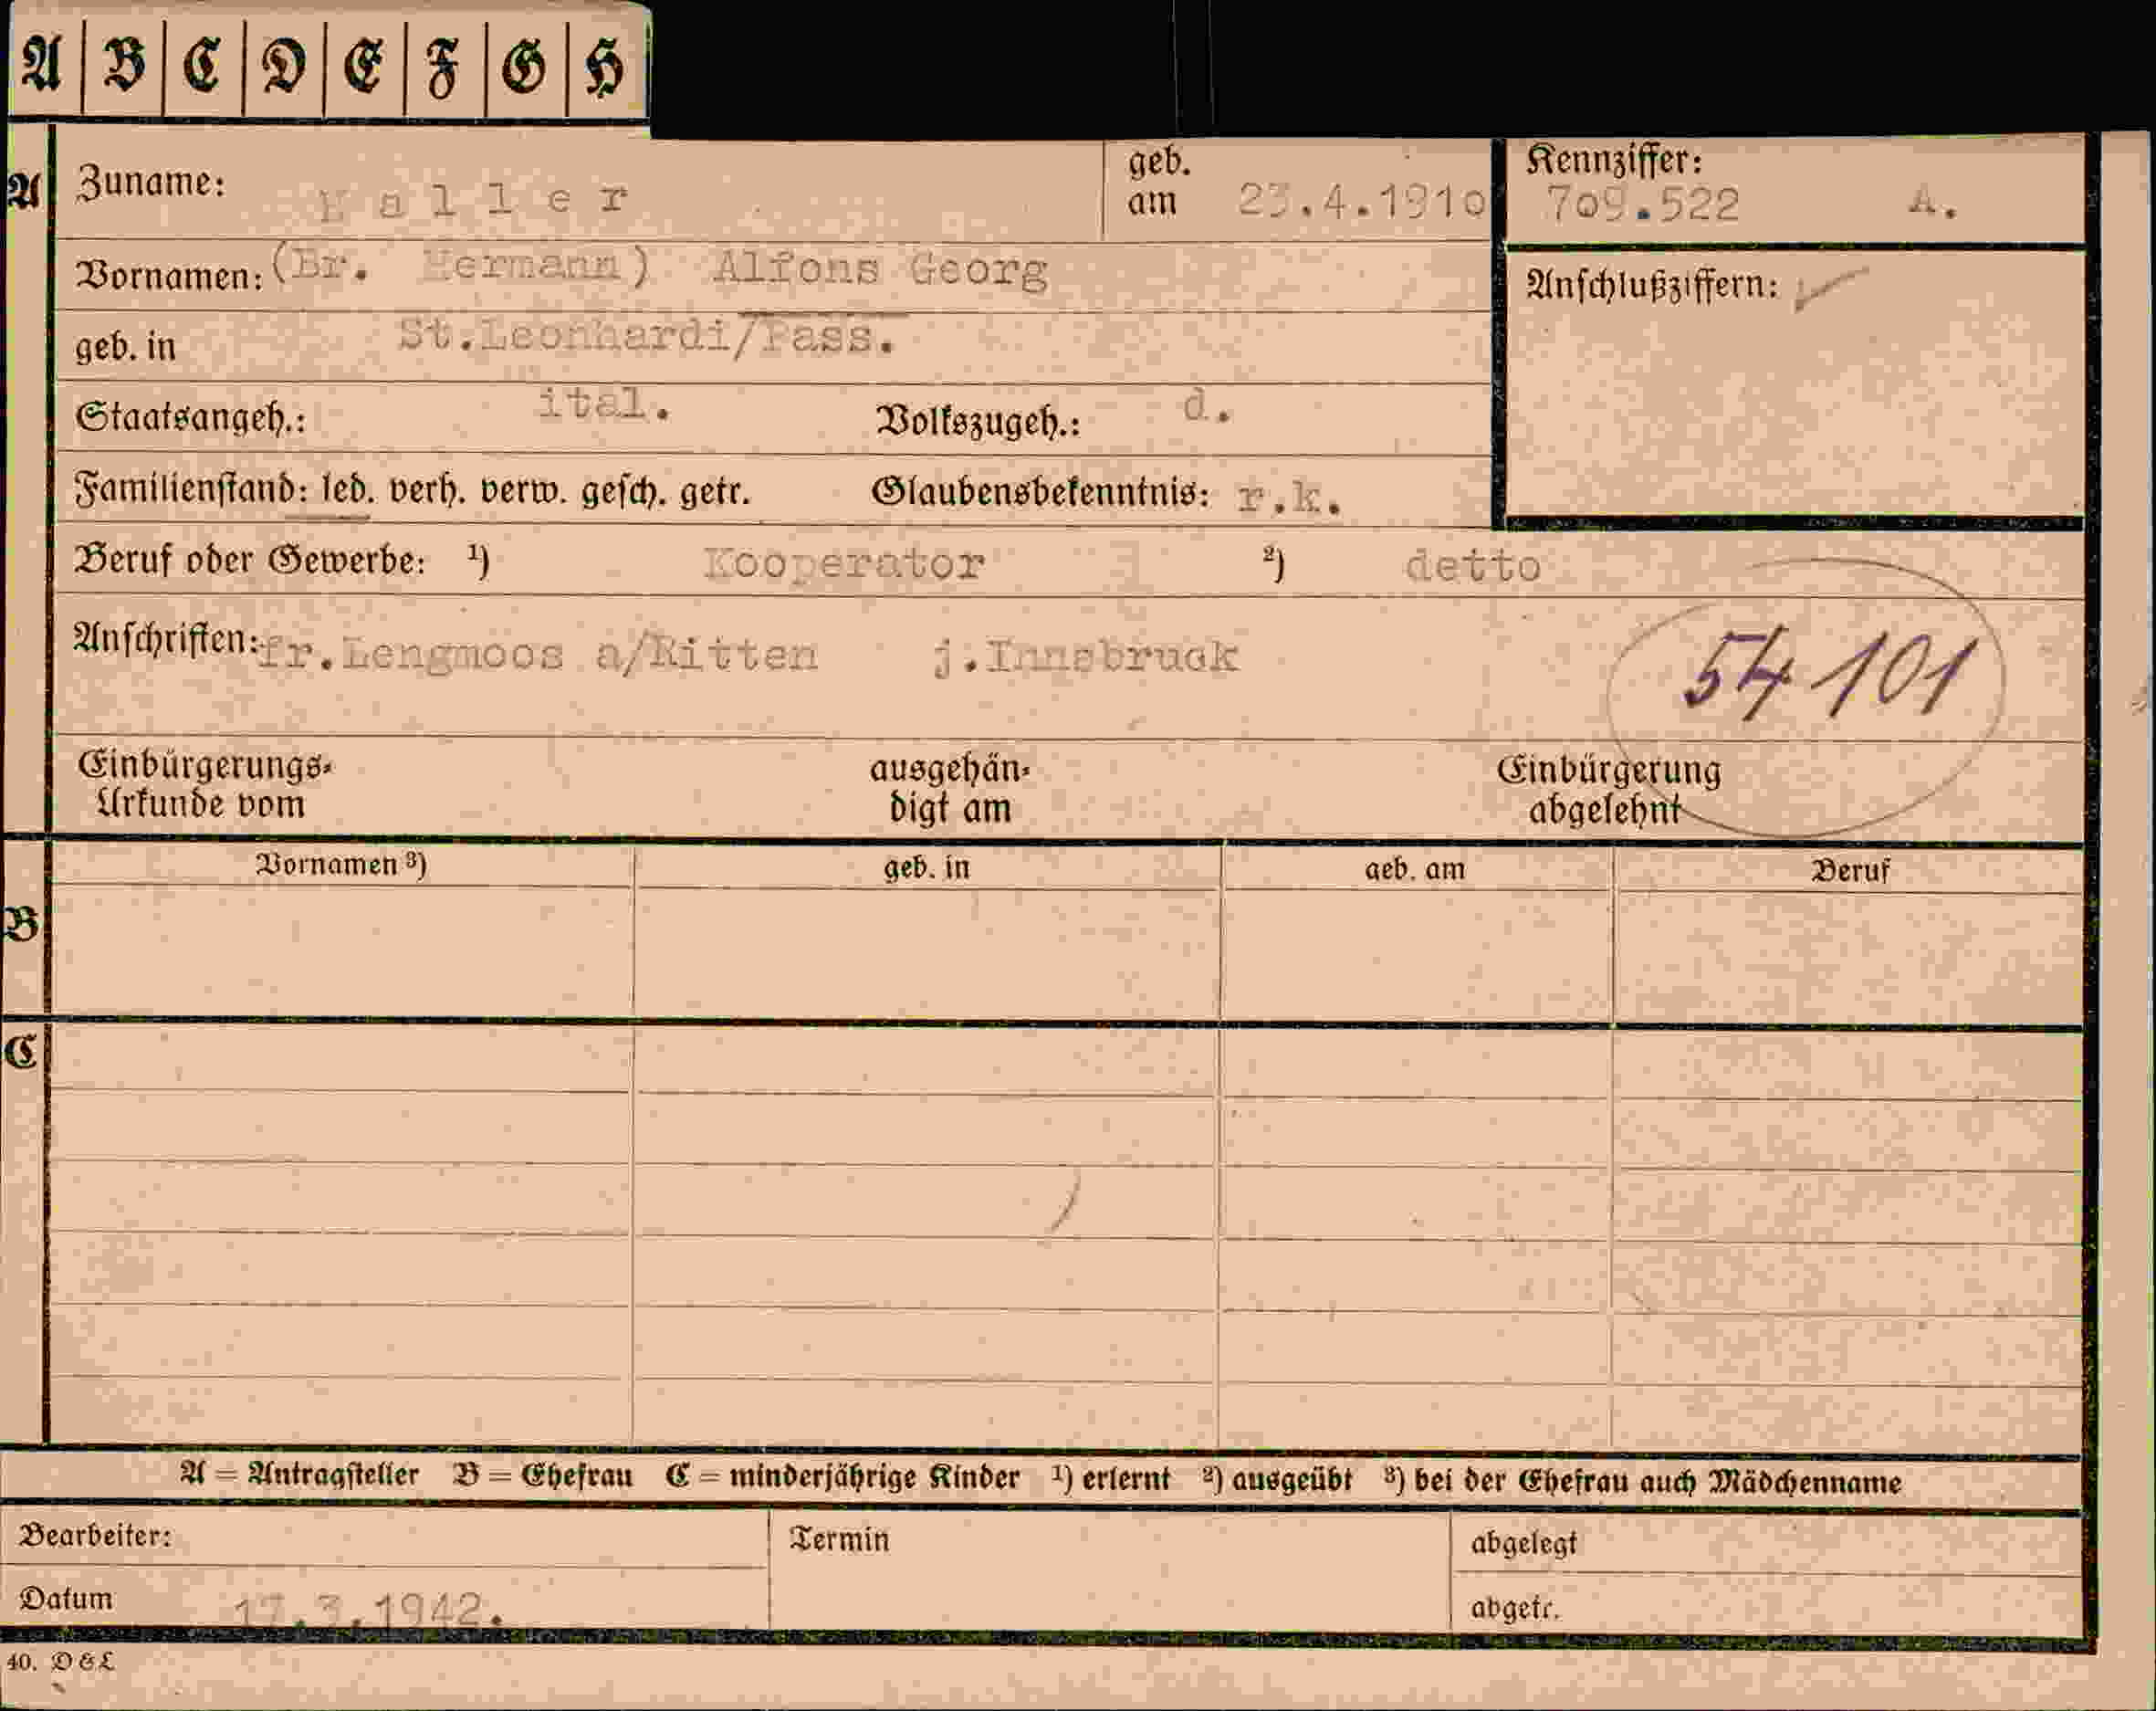 A B C D E F G H
A Zuname: Haller geb. am 23.4.1910 Kennziffer: 709.522 A.
Vornamen: (Br. Hermann) Alfons Georg Anschlußziffern:
geb. in St.Leonhardi/Pass.
Staatsangeh.: ital. Volkszugeh.: d.
Familienstand: led. verh. verw. gesch. getr. Glaubensbekenntnis: r.k.
Beruf oder Gewerbe: ¹) Kooperator ²) detto
Anschriften: fr.Lengmoos a/Ritten j.Innsbruck 54 101
Einbürgerungs- ausgehän- Einbürgerung
Urkunde vom digt am abgelehnt
Vornamen ³) geb. in geb. am Beruf
B
C
A = Antragsteller B = Ehefrau C = minderjährige Kinder ¹) erlernt ²) ausgeübt ³) bei der Ehefrau auch Mädchenname
Bearbeiter: Termin abgelegt
Datum 17.3.1942. abgetr.
40. D & L